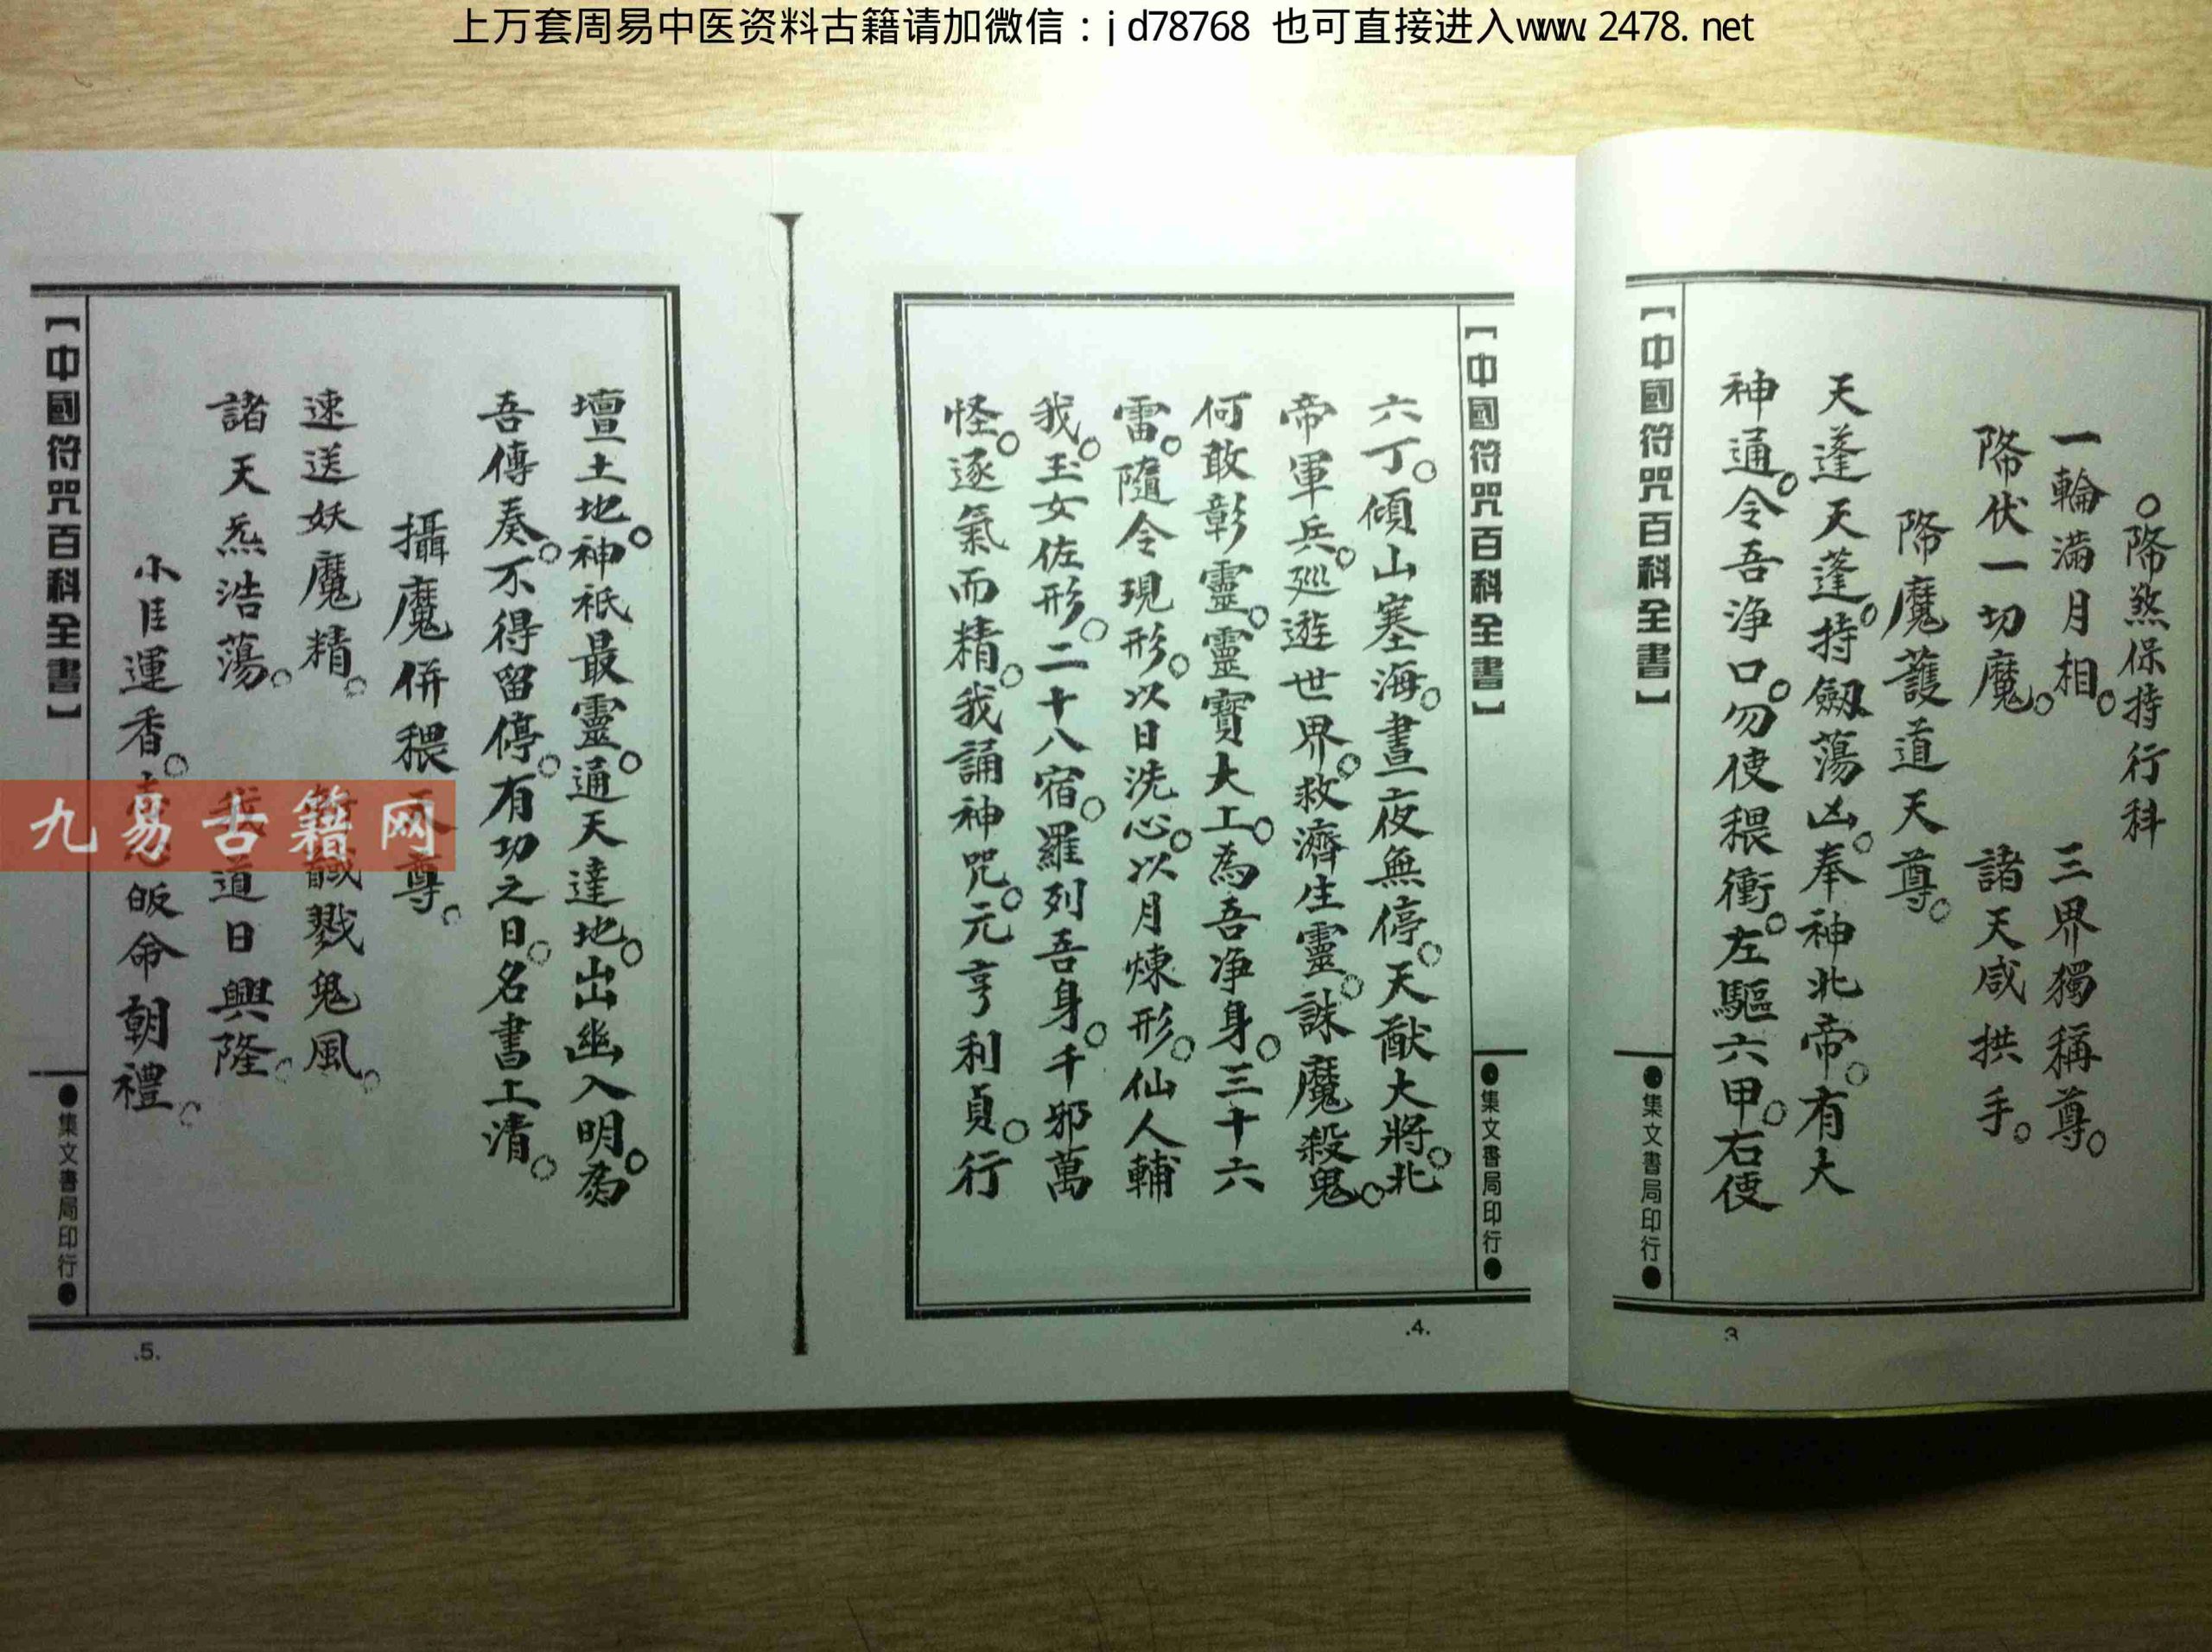 上万套周易中医资料古籍请加微信：jd78768 也可直接进入www.2478.net
【中國符咒百科全書】
●集文書局印行●
○降煞保持行科
一輪滿月相。 三界獨稱尊。
降伏一切魔。 諸天咸拱手。
降魔護道天尊。
天蓬天蓬。持劔蕩凶。奉神北帝。有大
神通。令吾净口。勿使穢衝。左驅六甲。右使
3
【中國符咒百科全書】
●集文書局印行●
六丁。傾山塞海。晝夜無停。天猷大將。北
帝軍兵。廵遊世界。救濟生靈。誅魔殺鬼。
何敢彰靈。靈寶大工。為吾净身。三十六
雷。隨令現形。以日洗心。以月煉形。仙人輔
我。玉女佐形。二十八宿。羅列吾身。千邪萬
怪。逐氣而精。我誦神咒。元亨利貞。行
.4.
壇土地。神祇最靈。通天達地。出幽入明。為
吾傳奏。不得留停。有功之日。名書上清。
攝魔併穢天尊。
速送妖魔精。 馘戮鬼風。
諸天炁浩蕩。 我道日興隆。
小𫢸運香。皈命朝禮。
【中國符咒百科全書】
●集文書局印行●
.5.
九易古籍网